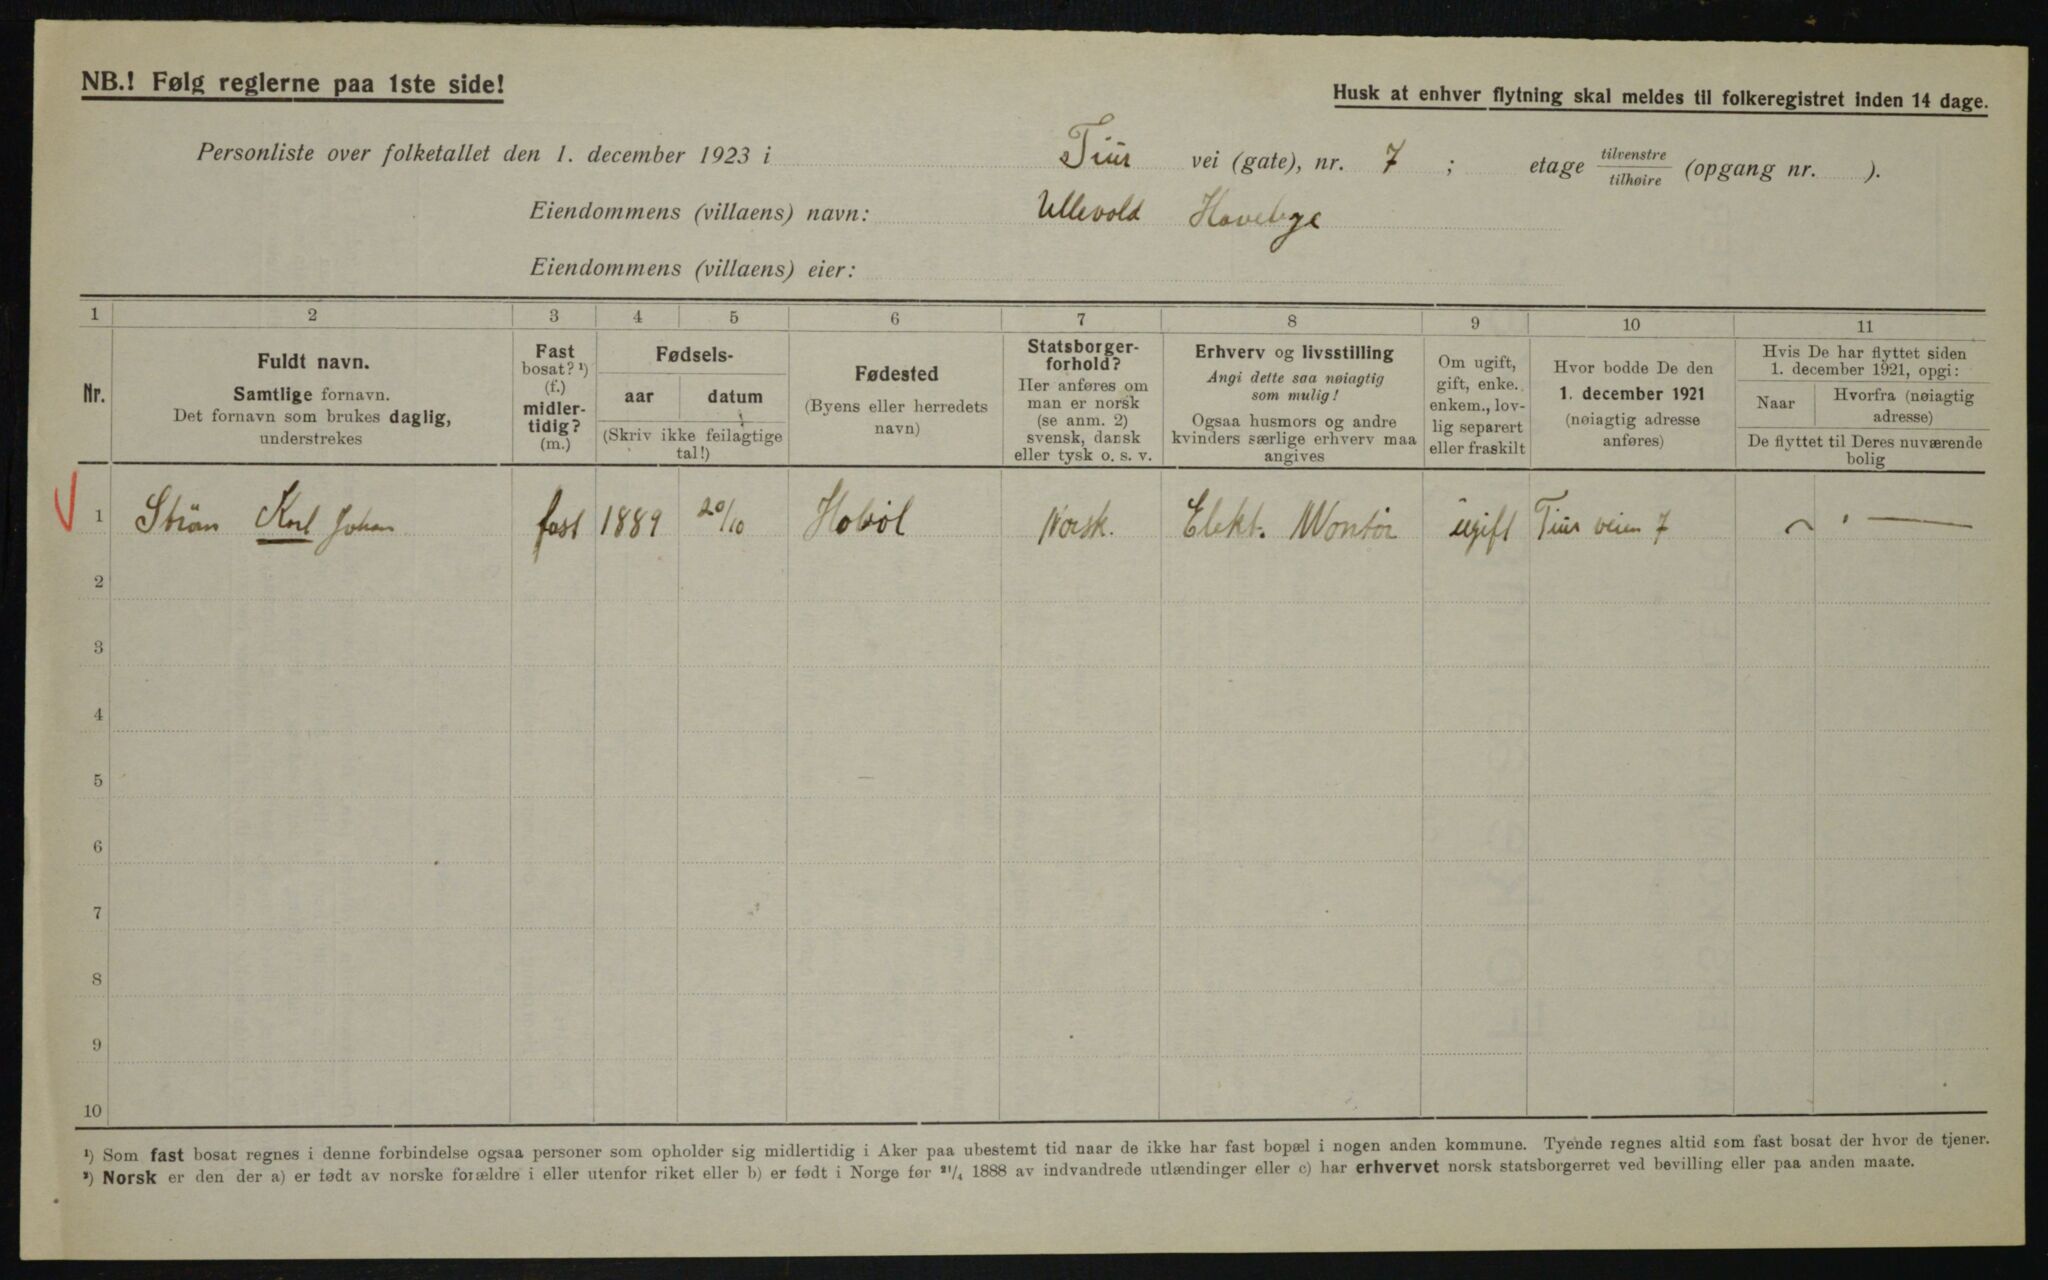 NB.! Følg reglerne paa 1ste side!
Husk at enhver flytning skal meldes til folkeregistret inden 14 dage.
Personliste over folketallet den 1. december 1923 i Tiur vei (gate), nr. 7 ; etage tilvenstre / tilhøire (opgang nr. ).
Eiendommens (villaens) navn: Ullevold Havebye
Eiendommens (villaens) eier:
1 2 3 4 5 6 7 8 9 10 11
Nr.
Fuldt navn.
Samtlige fornavn.
Det fornavn som brukes daglig,
understrekes
Fast
bosat? ¹)
(f.)
midler-
tidig?
(m.)
Fødsels-
aar datum
(Skriv ikke feilagtige
tal!)
Fødested
(Byens eller herredets
navn)
Statsborger-
forhold?
Her anføres om
man er norsk
(se anm. 2)
svensk, dansk
eller tysk o. s. v.
Erhverv og livsstilling
Angi dette saa nøiagtig
som mulig!
Ogsaa husmors og andre
kvinders særlige erhverv maa
angives
Om ugift,
gift, enke.
enkem., lov-
lig separert
eller fraskilt
Hvor bodde De den
1. december 1921
(nøiagtig adresse
anføres)
Hvis De har flyttet siden
1. december 1921, opgi:
Naar
Hvorfra (nøiagtig
adresse)
De flyttet til Deres nuværende
bolig
1 Strøm Karl Johan fast 1889 20/10 Hobøl Norsk. Elekt. Montør ugift Tiur veien 7
2
3
4
5
6
7
8
9
10
¹) Som fast bosat regnes i denne forbindelse ogsaa personer som opholder sig midlertidig i Aker paa ubestemt tid naar de ikke har fast bopæl i nogen anden kommune. Tyende regnes altid som fast bosat der hvor de tjener.
²) Norsk er den der a) er født av norske forældre i eller utenfor riket eller b) er født i Norge før 21/4 1888 av indvandrede utlændinger eller c) har erhvervet norsk statsborgerret ved bevilling eller paa anden maate.